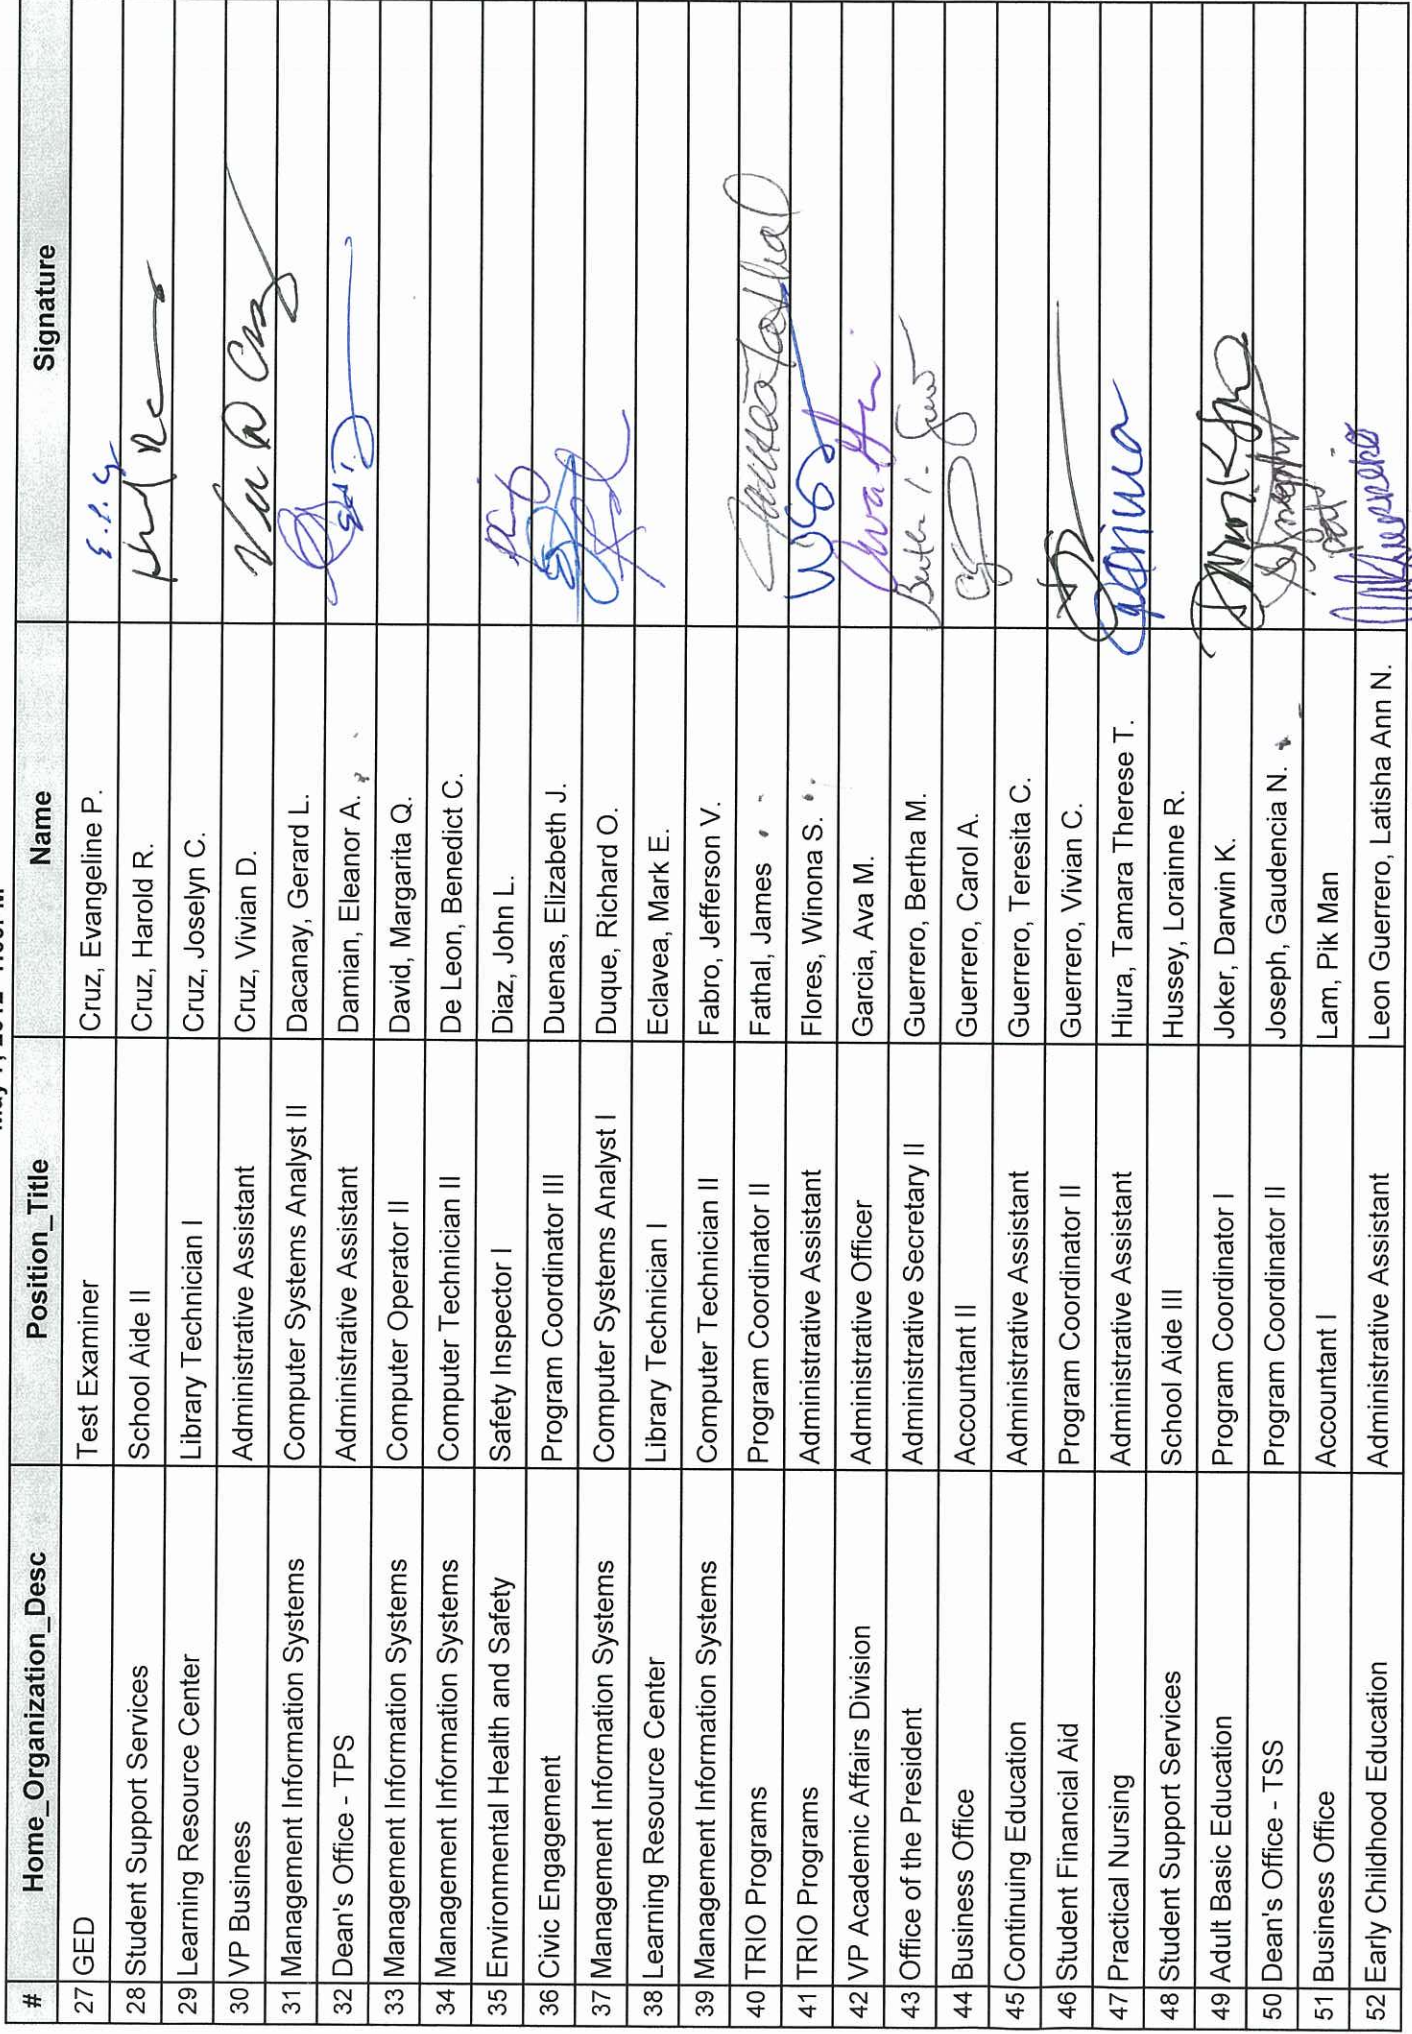 # Home_Organization_Desc Position_Title Name Signature
27 GED Test Examiner Cruz, Evangeline P. E.P.C
28 Student Support Services School Aide II Cruz, Harold R.
29 Learning Resource Center Library Technician I Cruz, Joselyn C.
30 VP Business Administrative Assistant Cruz, Vivian D.
31 Management Information Systems Computer Systems Analyst II Dacanay, Gerard L.
32 Dean's Office - TPS Administrative Assistant Damian, Eleanor A.
33 Management Information Systems Computer Operator II David, Margarita Q.
34 Management Information Systems Computer Technician II De Leon, Benedict C.
35 Environmental Health and Safety Safety Inspector I Diaz, John L.
36 Civic Engagement Program Coordinator III Duenas, Elizabeth J.
37 Management Information Systems Computer Systems Analyst I Duque, Richard O.
38 Learning Resource Center Library Technician I Eclavea, Mark E.
39 Management Information Systems Computer Technician II Fabro, Jefferson V.
40 TRIO Programs Program Coordinator II Fathal, James
41 TRIO Programs Administrative Assistant Flores, Winona S.
42 VP Academic Affairs Division Administrative Officer Garcia, Ava M.
43 Office of the President Administrative Secretary II Guerrero, Bertha M.
44 Business Office Accountant II Guerrero, Carol A.
45 Continuing Education Administrative Assistant Guerrero, Teresita C.
46 Student Financial Aid Program Coordinator II Guerrero, Vivian C.
47 Practical Nursing Administrative Assistant Hiura, Tamara Therese T.
48 Student Support Services School Aide III Hussey, Lorainne R.
49 Adult Basic Education Program Coordinator I Joker, Darwin K.
50 Dean's Office - TSS Program Coordinator II Joseph, Gaudencia N.
51 Business Office Accountant I Lam, Pik Man
52 Early Childhood Education Administrative Assistant Leon Guerrero, Latisha Ann N.